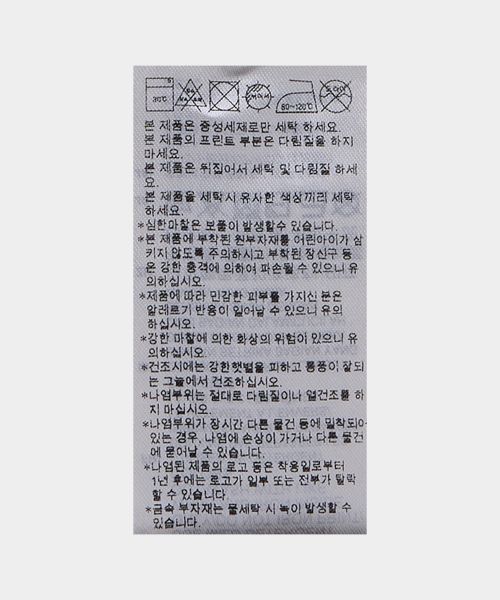 30℃
80~120℃
본 제품은 중성세제로만 세탁 하세요.
본 제품의 프린트 부분은 다림질을 하지
마세요.
본 제품은 뒤집어서 세탁 및 다림질 하세
요.
본 제품을 세탁시 유사한 색상끼리 세탁
하세요.
*심한마찰은 보풀이 발생할수 있습니다.
*본 제품에 부착된 원부자재를 어린아이가 삼
키지 않도록 주의하시고 부착된 장신구 등
은 강한 충격에 의하여 파손될 수 있으니 유
의하십시오.
*제품에 따라 민감한 피부를 가지신 분은
알레르기 반응이 일어날 수 있으니 유의
하십시오.
*강한 마찰에 의한 화상의 위험이 있으니 유
의하십시오.
*건조시에는 강한햇볕을 피하고 통풍이 잘되
는 그늘에서 건조하십시오.
*나염부위는 절대로 다림질이나 열건조를 하
지 마십시오.
*나염부위가 장시간 다른 물건 등에 밀착되어
있는 경우, 나염에 손상이 가거나 다른 물건
에 묻어날 수 있습니다.
*나염된 제품의 로고 등은 착용일로부터
1년 후에는 로고가 일부 또는 전부가 탈락
할 수 있습니다.
*금속 부자재는 물세탁 시 녹이 발생할 수
있습니다.